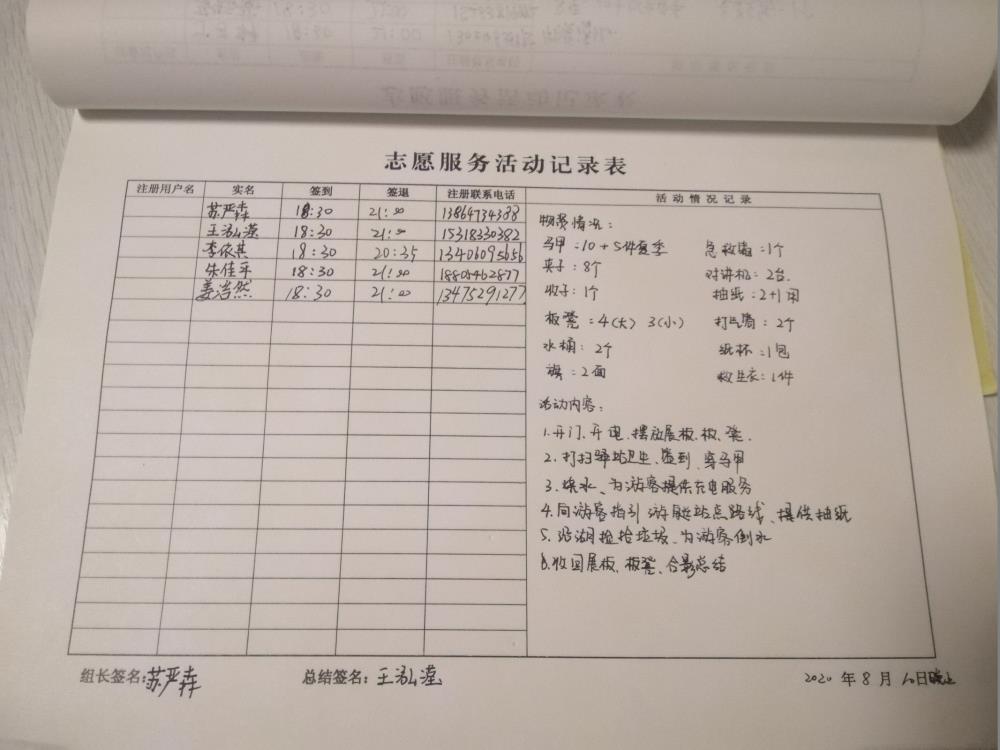 志愿服务活动记录表
注册用户名 实名 签到 签退 注册联系电话 活动情况记录
苏严森 18:30 21:00 13864734388
王泓滢 18:30 21:00 15318330382
李依其 18:30 20:35 13406095656
朱佳平 18:30 21:00 18804462877
姜浩然 18:30 21:00 13475291277
物资情况:
马甲:10+5件夏季 急救箱:1个
夹子:8个 对讲机:2台
收子:1个 抽纸:2+1用
板凳:4(大) 3(小) 打气筒:2个
水桶:2个 纸杯:1包
旗:2面 救生衣:1件
活动内容:
1.开门、开电、摆放展板、板、凳.
2.打扫驿站卫生、签到、穿马甲
3.换水、为游客提供充电服务
4.向游客指引游艇站点路线、提供抽纸
5.沿湖捡拾垃圾、为游客倒水
6.收回展板、板凳、合影总结
组长签名:苏严森 总结签名:王泓滢 2020年8月10日晚上